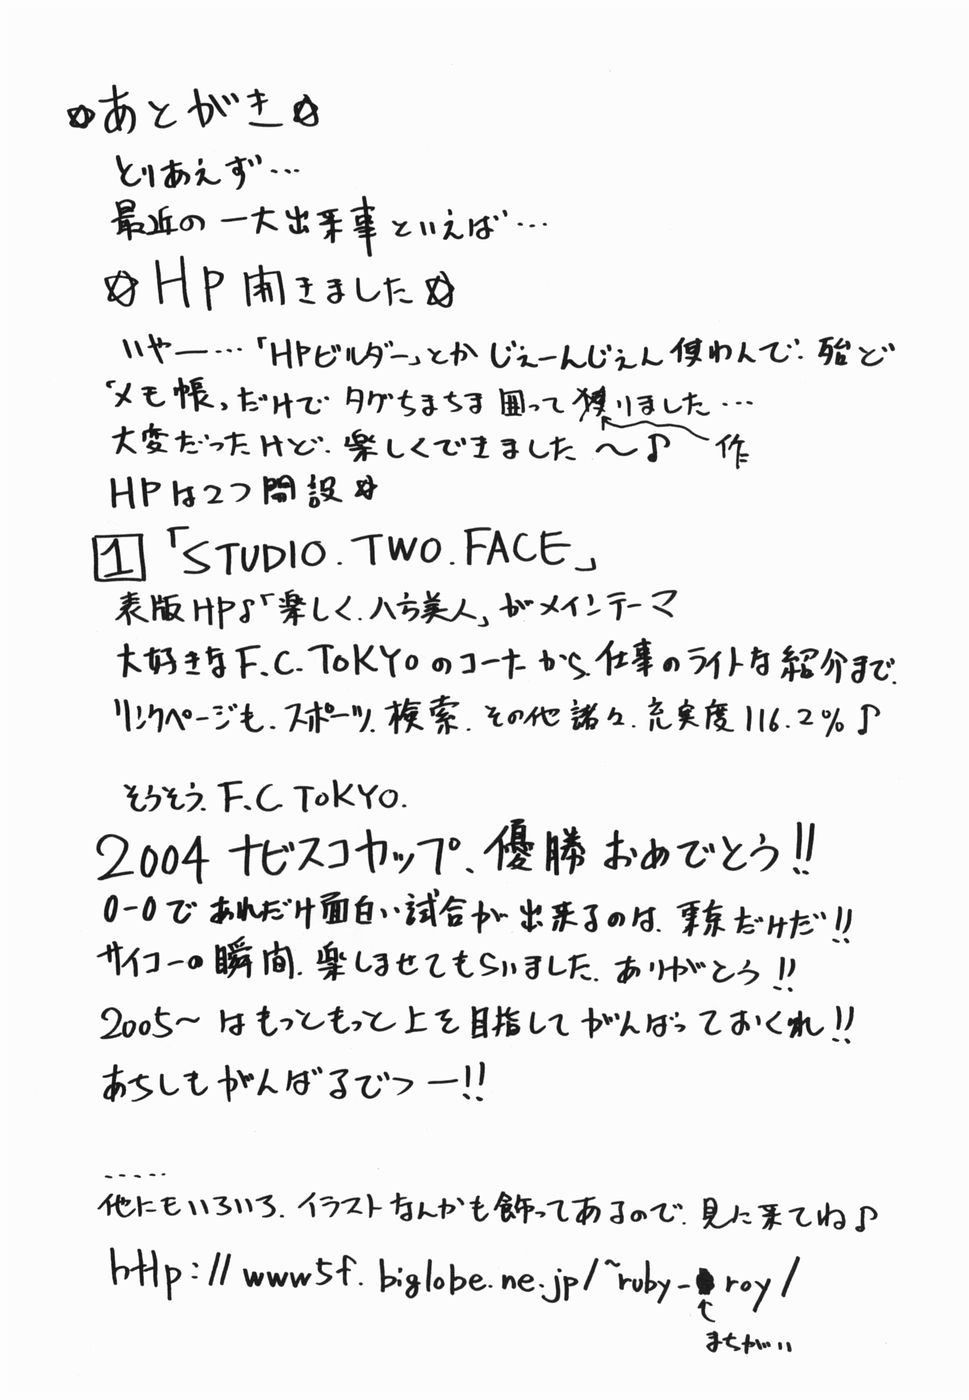 ☆あとがき☆
とりあえず…
最近の一大出来事といえば…
☆HP開きました☆
いやー…「HPビルダー」とかじぇーんじぇん使わんで、殆ど
「メモ帳」だけでタグちまちま囲って りました…
作
大変だったけど、楽しくできました～♪
HPは2つ開設☆
1「STUDIO.TWO.FACE」
表版HP♪「楽しく、八方美人」がメインテーマ
大好きなF.C.TOKYOのコーナーから、仕事のライトな紹介まで、
リンクページも、スポーツ、検索、その他諸々、充実度116.2%♪
そうそう、F.C TOKYO.
2004ナビスコカップ、優勝おめでとう!!
0-0であれだけ面白い試合が出来るのは、東京だけだ!!
サイコーの瞬間、楽しませてもらいました、ありがとう!!
2005～はもっともっと上を目指してがんばっておくれ!!
あちしもがんばるでつー!!
‥‥‥
他にもいろいろ、イラストなんかも飾ってあるので、見に来てね♪
http://www5f.biglobe.ne.jp/~ruby-roy/
まちがい